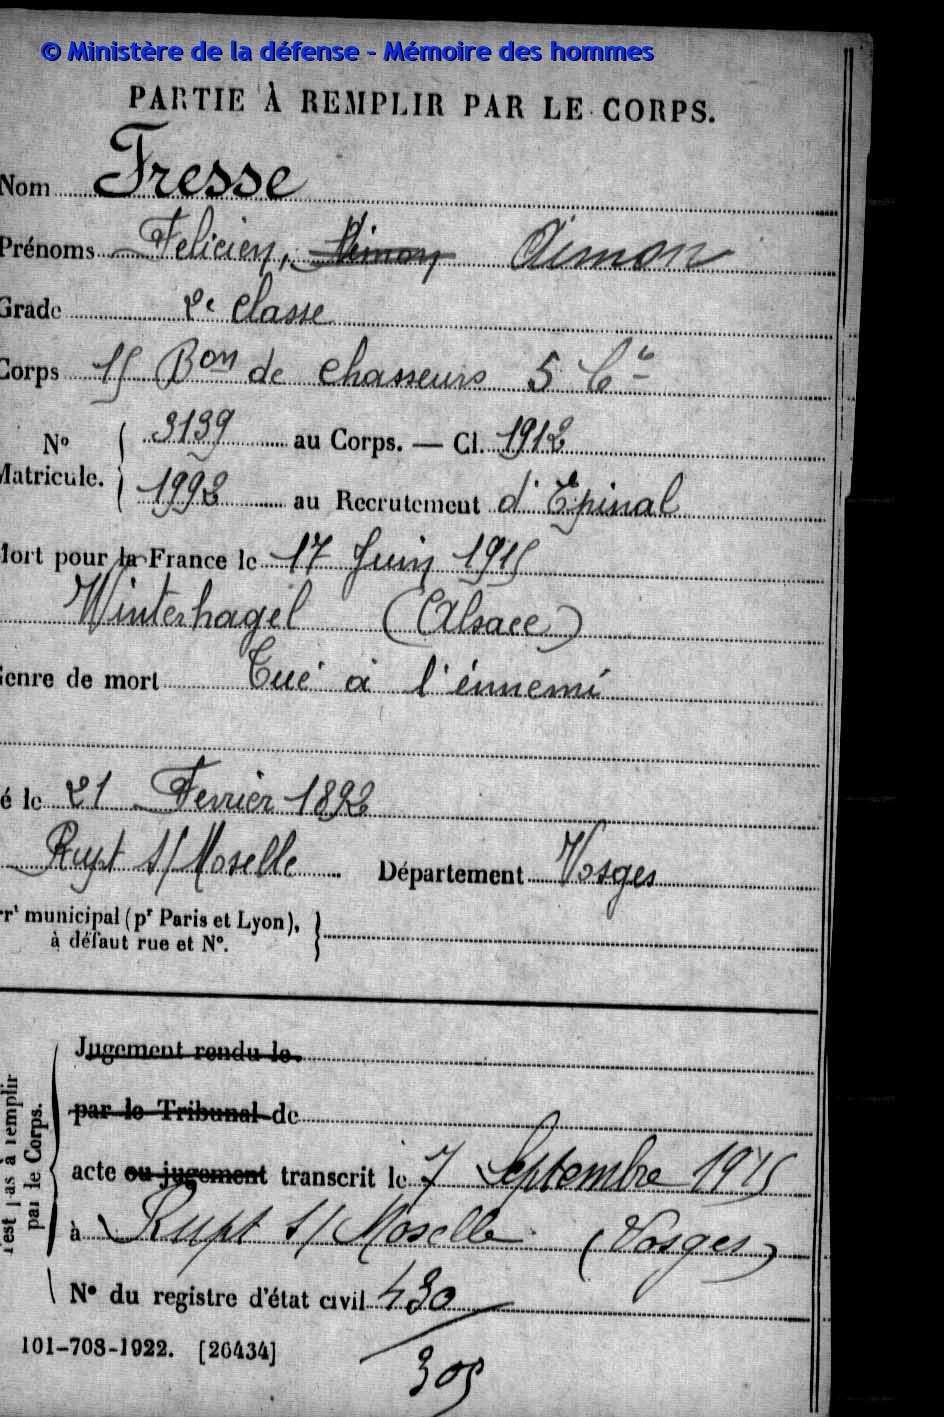 © Ministère de la défense - Mémoire des hommes
PARTIE À REMPLIR PAR LE CORPS.
Nom Fresse
Prénoms Felicien, Aimon Aimon
Grade 2e classe
Corps 15 Bon de chasseurs 5 Cie
N° Matricule. 3139 au Corps. — Cl. 1912
1992 au Recrutement d'Epinal
Mort pour la France le 17 Juin 1915
Winterhagel (Alsace)
Genre de mort Tué à l'énnemi
é le 21 Fevrier 1892
Rupt s/Moselle Département Vosges
rrt municipal (pr Paris et Lyon),
à défaut rue et N°.
Jugement rendu le
par le Tribunal de
acte ou jugement transcrit le 7 Septembre 1915
à Rupt s/Moselle (Vosges)
N° du registre d'état civil 430
par le Corps.
101-708-1922. [26434]
305